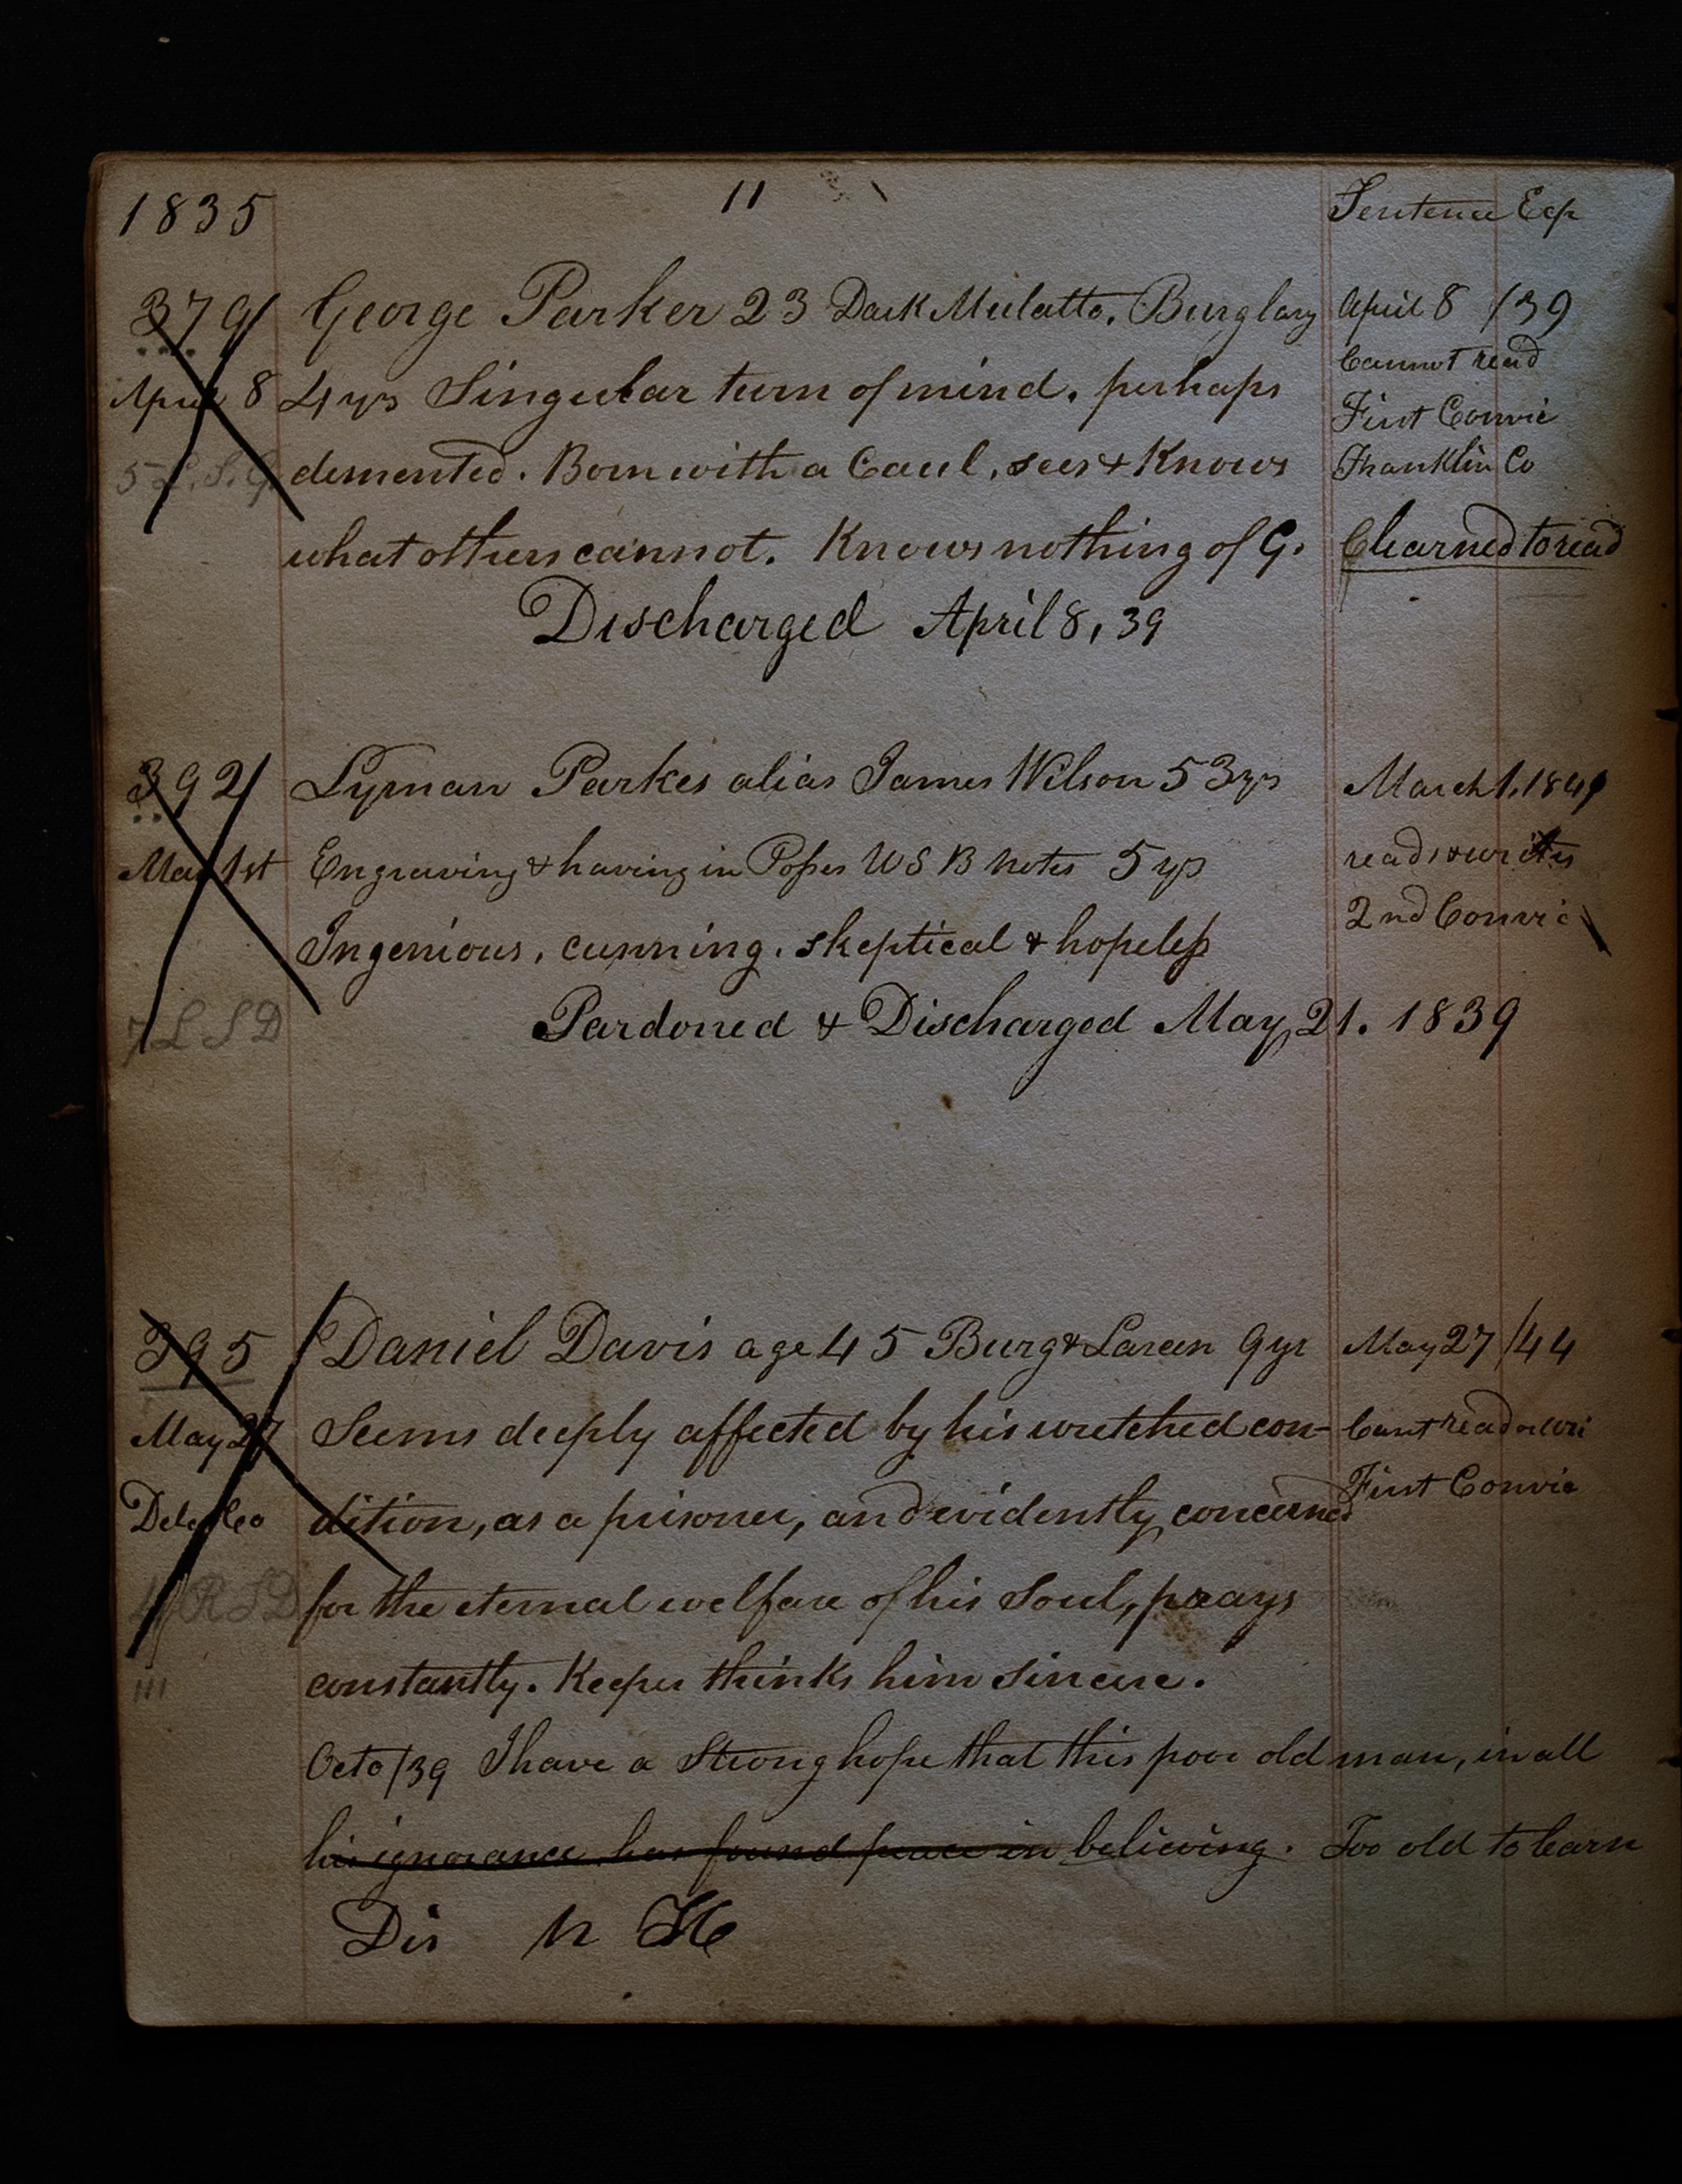 1835 11 Sentence Exp
379 George Parker 23 Dark Mulatto. Burglary April 8 /39
Cannot read
April 8 4 yrs Singular turn of mind. perhaps First Convic
5 L. S. G. demented. Born with a Caul, sees & Knows Franklin Co
what others cannot. Knows nothing of G. learned to read
Discharged April 8, 39
392 Lyman Parkes alias James Wilson 53 yrs March 1. 184
May 1st Engraving & having in Posses U S B notes 5 yrs reads & writes
2nd Convic
Ingenious, cunning, skeptical & hopeless
7 L S D Pardoned & Discharged May 21. 1839
395 Daniel Davis age 45 Burg & Larcen 9 yr May 27 /44
May 27 Seems deeply affected by his wretched con- Cant read or wri
First Convic
Dela Co dition, as a prisoner, and evidently concerned
4 R S D for the eternal welfare of his Soul, prays
III constantly. Keeper thinks him sincere.
Octo /39 I have a Strong hope that this poor old man, in all
his ignorance has found peace in believing. Too old to learn
Dis